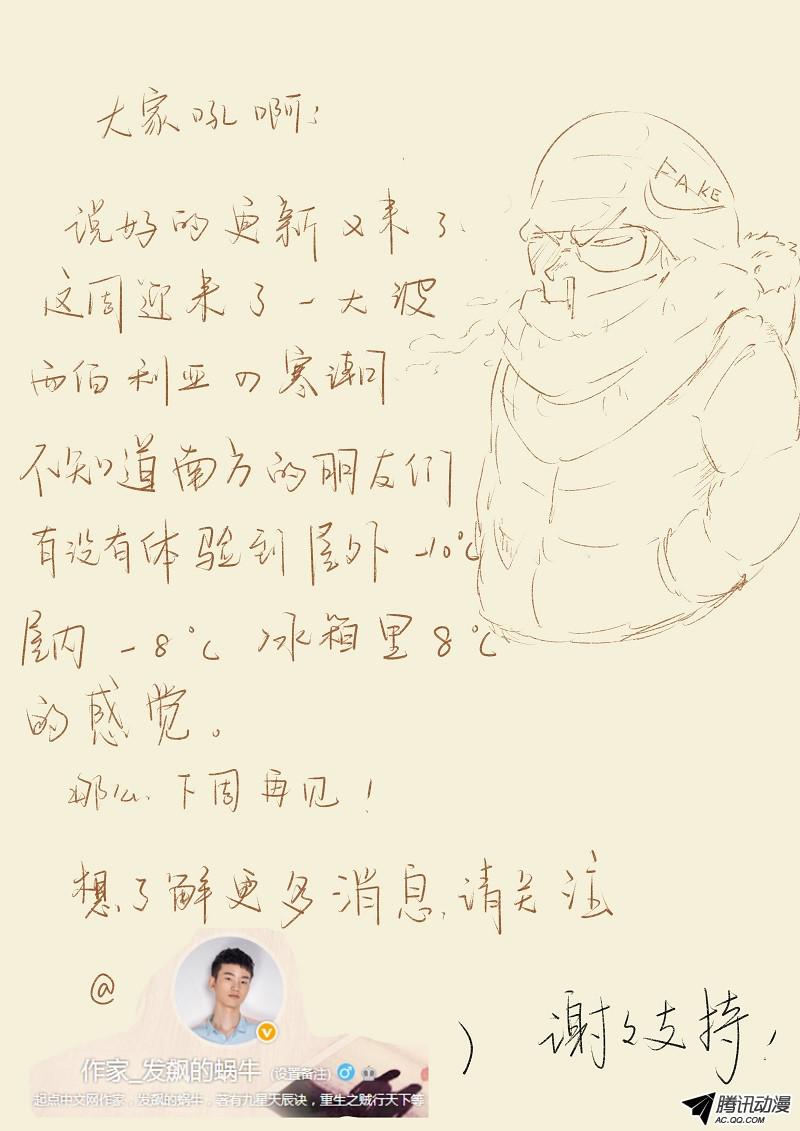 大家吼啊：
FAKE
说好的更新又来了.
这周迎来了一大波
西伯利亚の寒潮
不知道南方的朋友们
有没有体验到屋外 -10℃
屋内 -8℃ 冰箱里 8℃
的感觉。
那么. 下周再见！
想了解更多消息, 请关注
@
作家_发飙的蜗牛 (设置备注)
起点中文网作家，发飙的蜗牛，著有九星天辰诀，重生之贼行天下等
谢々支持！
腾讯动漫
AC.QQ.COM